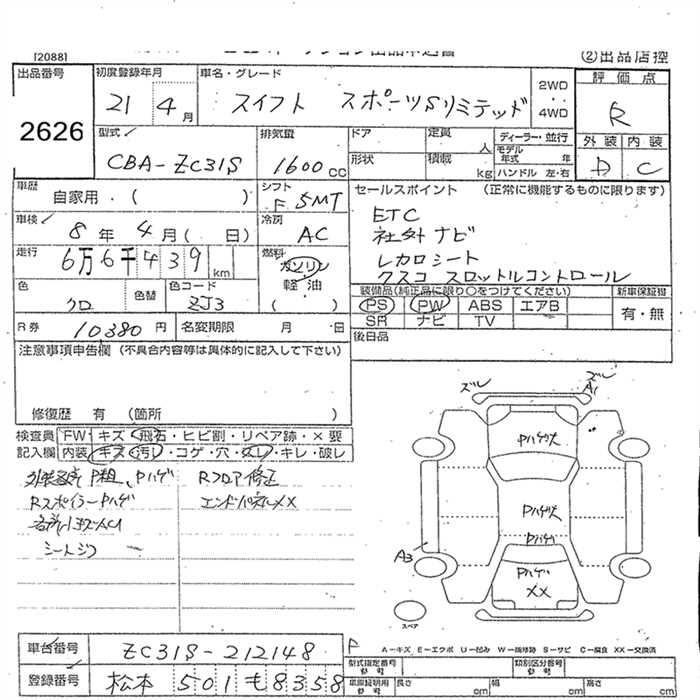 [2088]
②出品店控
出品番号
2626
初度登録年月
21 4月
車名・グレード
スイフト スポーツSリミテッド
2WD
・・
4WD
評価点
R
外装 内装
D C
型式
CBA-ZC31S
排気量
1600cc
ドア
定員 人
ディーラー・並行
モデル年式 年
形状
積載 kg
ハンドル 左・右
車歴
自家用・( )
シフト
F 5MT
セールスポイント (正常に機能するものに限ります)
ETC
社外ナビ
レカロシート
クスコ スロットルコントロール
車検
8年4月( 日)
冷房
AC
走行
6万6千439km
燃料
ガソリン
軽・油
( )
色
クロ
色替
色コード
ZJ3
装備品(純正品に限り○をつけてください)
新車保証書
PS PW ABS エアB
SR ナビ TV
有・無
R券 10380円
名変期限 月・日
後日品
注意事項申告欄(不具合内容等は具体的に記入して下さい)
修復歴 有 (箇所 )
検査員記入欄
FW・キズ・飛石・ヒビ割・リペア跡・×要
内装・キズ・汚レ・コゲ・穴・スレ・キレ・破レ
Pハゲ
Rフロア修正
Rスポイラー Pハゲ
エンドパネルXX
ズレ
ズレ
A1
Pハゲ大
Pハゲ大
Pハゲ
Pハゲ
XX
A3
スペア
A-キズ E-エクボ U-凹み W-補修跡 S-サビ C-腐食 XX-交換済
車台番号
ZC31S-212148
登録番号
松本 501 も 8358
型式指定番号
類別区分番号
長さ cm 幅 cm 高さ cm